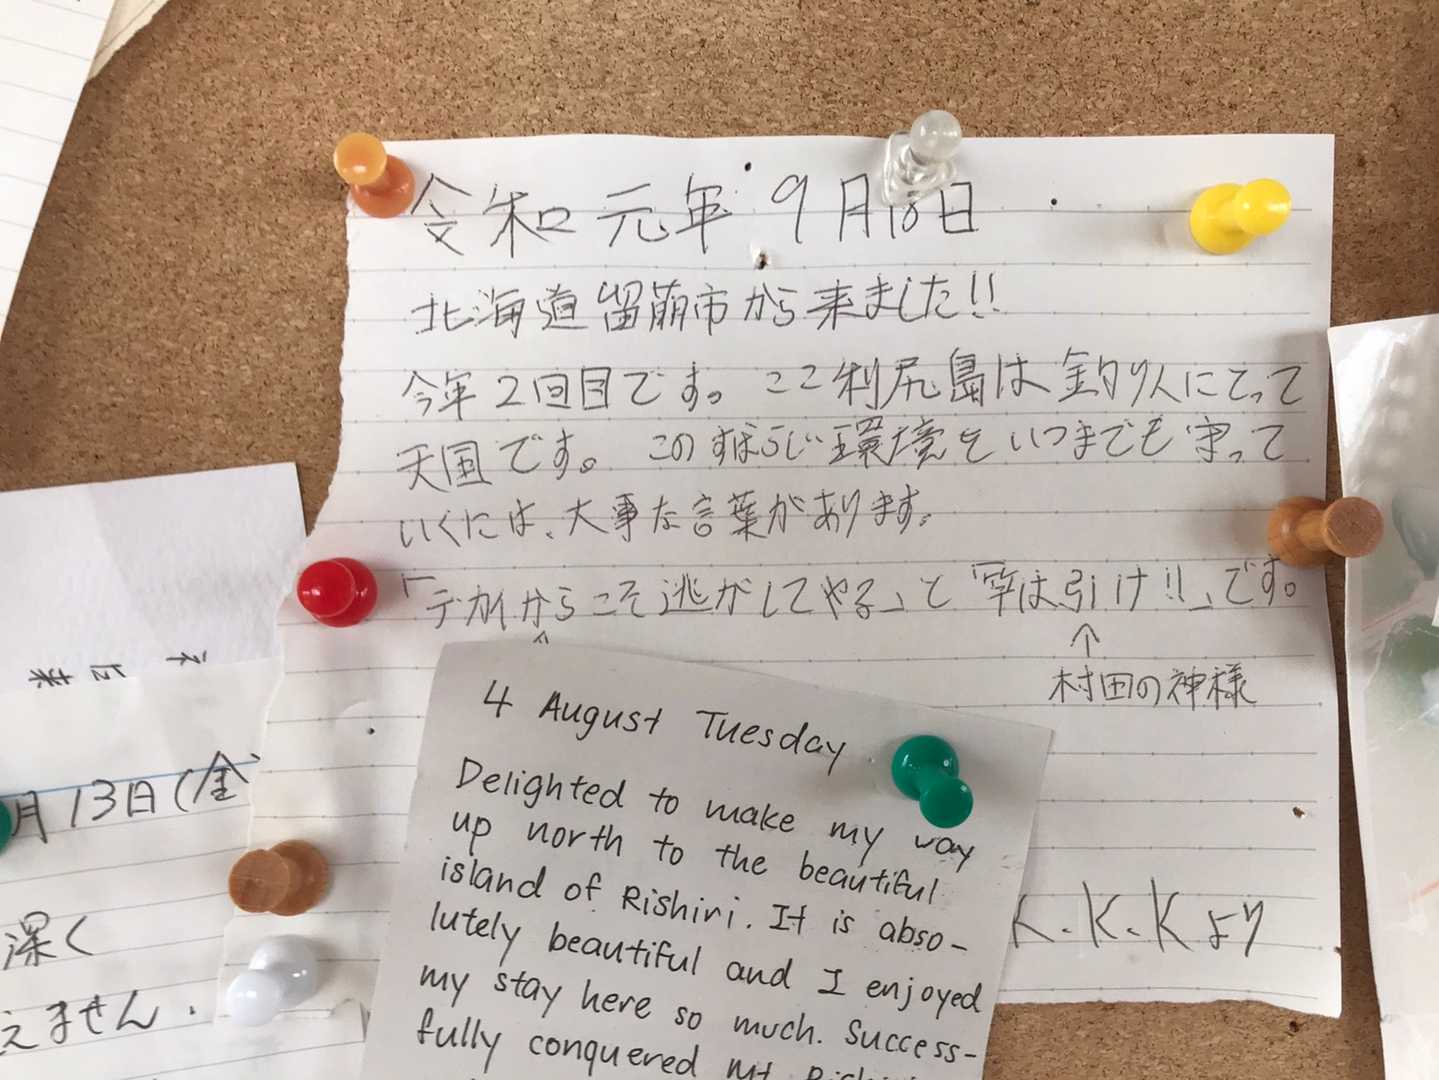 令和元年 9月18日
北海道留萠市から来ました!!
今年2回目です。ここ利尻島は釣り人にとって
天国です。このすばらしい環境をいつまでも守って
いくには、大事な言葉があります。
「デカイからこそ逃がしてやる」と「竿は引け!!」です。
↑
村田の神様
K.K.Kより
4 August Tuesday
Delighted to make my way
up north to the beautiful
island of Rishiri. It is abso-
lutely beautiful and I enjoyed
my stay here so much. Success-
fully conquered Mt Rishiri
月13日(金
深く
えません.